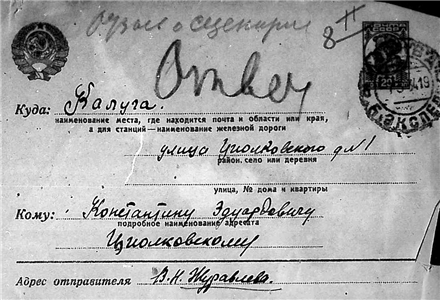 отзыв о сценарии
8 II
Ответ
ПОЧТА
СССР
МОСКВА
19
ЭКСПЕД
Куда: Калуга.
наименование места, где находится почта и области или края,
а для станций—наименование железной дороги
улица Циолковского д №1
район, село или деревня
улица, № дома и квартиры
Кому: Константину Эдуардовичу
подробное наименование адресата
Циолковскому
Адрес отправителя В. Н. Журавлева.